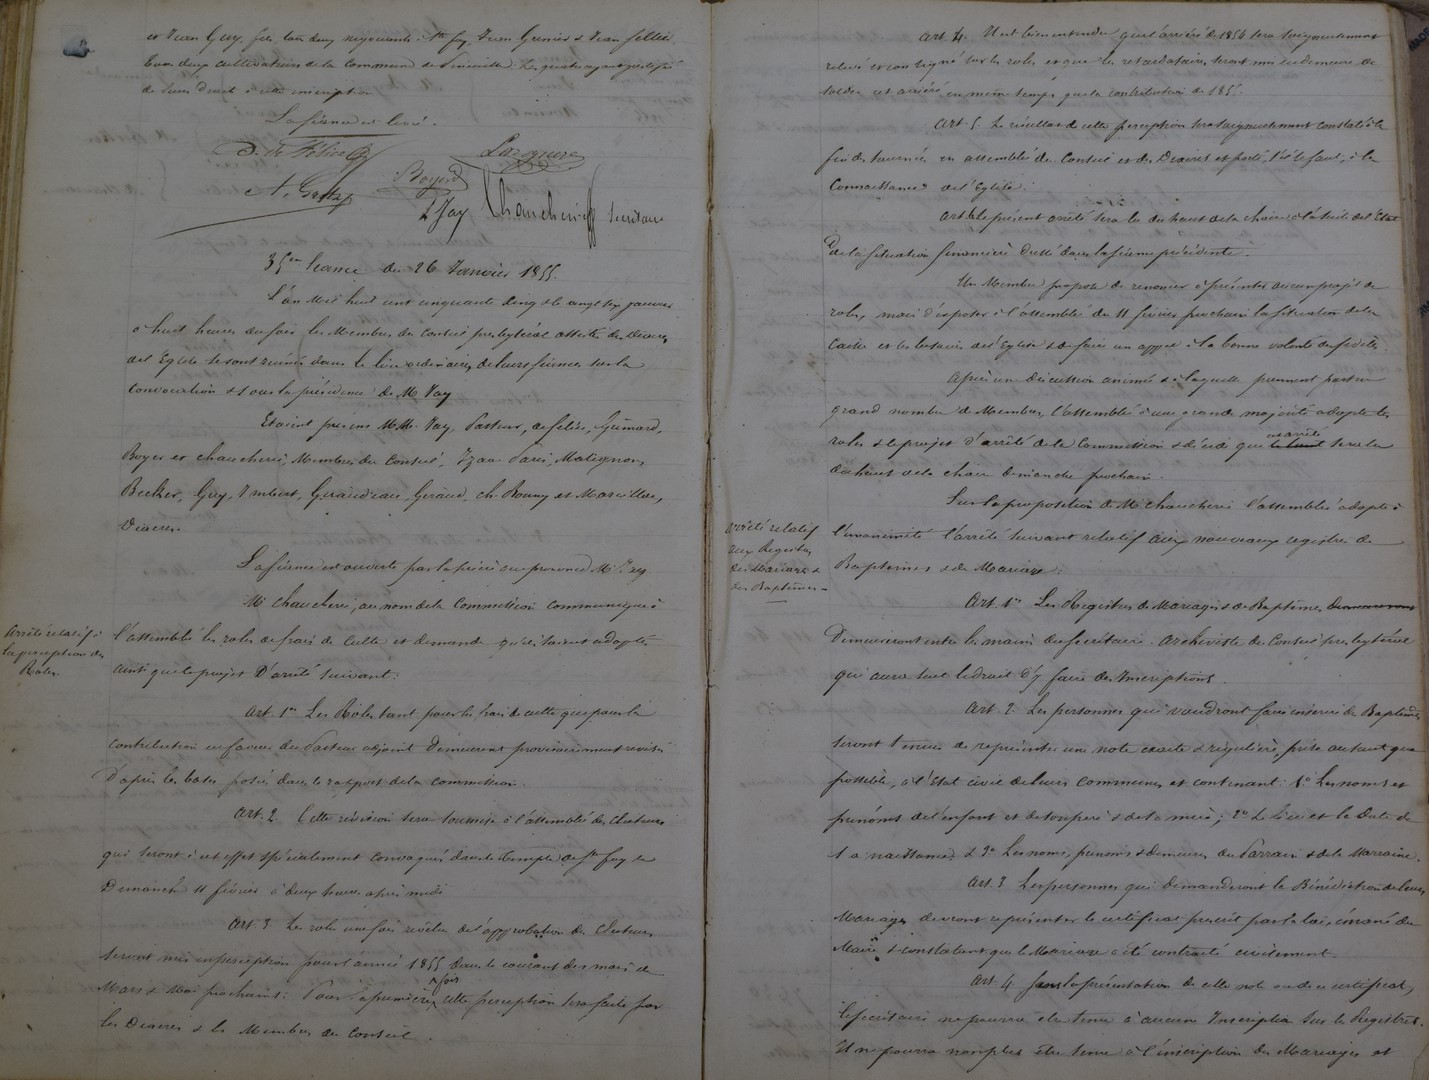 et Jean Guy, fils tous deux négociants à Ste foy, Jean Grenier & Jean Sellier
tous deux cultivateurs de la Commune de . Les quatre ayant justifié
de leurs droits à cette inscription
La séance est levée.
D. de Félice
Laroque
A. Gratz
Boyer
L Jay
Chaucherie secrétaire
35eme Séance du 26 Janvier 1855.
L'an Mil huit cent cinquante cinq & le vingt six janvier
à huit heures du soir les Membres du Conseil presbytéral assistés des Diacres
de l'Eglise se sont réunis dans le lieu ordinaire de leurs séances sur la
Convocation & sous la présidence de Mr Jay
Etaient présens MM. Jay, Pasteur, de Félice, Guimard,
Boyer et Chaucherie, Membres du Conseil, Matignon,
Becker, Guy, Imbert, Giraudeau, Géraud, ch. Roumy et Marcillac,
Diacres.
La séance est ouverte par la prière que prononce Mr Jay
Arrêté relatif à
la perception des
Roles
Mr Chaucherie, au nom de la Commission communique à
l'assemblée les roles de frais de Culte et demande qu'ils soient adoptés
ainsi que le projet D'arrêté suivant.
Art. 1er Les Rôles tant pour les frais de culte que pour la
contribution en faveur du Pasteur adjoint Demeurent provisoirement révisés
D'après les bases posées dans le rapport de la Commission.
Art. 2 Cette révision sera soumise à l'assemblée des Electeurs
qui seront à cet effet spécialement convoqués dans le Temple de Ste foy le
Dimanche 11 février à deux heures après midi
Art. 3 Les roles une fois revêtus de l'approbation des Electeurs
seront mis en perception pour l'année 1855 dans le courant des mois de
Mars & Mai prochains. Pour la première fois cette perception sera faite par
les Diacres & les Membres du Conseil.
Art. 4. Il est bien entendu que l'arriéré de 1854 sera soigneusement
relevé et consigné sur les roles et que les retardataires seront mis en demeure de
solder cet arriéré en même temps que la contribution de 1855.
Art. 5 Le résultat de cette perception sera soigneusement constaté à la
fin des tournées en assemblée du Conseil et des Diacres et porté, s'il le faut, à la
Connaissance de l'Eglise.
Art. 6 Le présent arrêté sera lu du haut de la chaire à la suite de l'Etat
de la Situation financière dressé dans la séance précédente.
Un Membre propose de renoncer à présenter aucun projet de
roles, mais d'exposer à l'assemblée du 11 février prochain la situation de la
Caisse et les besoins de l'Eglise & de faire un appel à la bonne volonté des fidèles.
Après une discussion animée & à laquelle prennent part un
grand nombre de Membres, l'assemblée à une grande majorité adopte les
roles & le projet d'arrêté de la Commission & décide que cet arrêté sera lu
du haut de la chaire Dimanche prochain.
Arrêté relatif
aux Registres
des Mariages &
des Baptêmes
Sur la proposition de Mr Chaucherie l'assemblée adopte à
l'unanimité l'arrêté suivant relatif aux nouveaux registres de
Baptêmes & de Mariage:
Art. 1er Les Registres de Mariages & de Baptêmes demeureront
Demeureront entre les mains du Secrétaire-Archiviste du Conseil presbytéral
qui aura seul le droit d'y faire des Inscriptions.
Art. 2. Les personnes qui voudront faire inscrire des Baptêmes
seront tenues de représenter une note exacte & régulière, prise autant que
possible, à l'Etat civil de leurs communes et contenant: 1° Les noms et
prénoms de l'enfant et de son père & de sa mère; 2° Le lieu et la Date de
sa naissance & 3° Les noms, prénoms & demeures du Parrain & de la Marraine.
Art. 3 Les personnes qui demanderont la Bénédiction de leur
Mariage devront représenter le certificat prescrit par la loi, émané du
Maire & constatant que le Mariage a été contracté civilement.
Art. 4 Sans la présentation de cette note ou de ce certificat,
le Secrétaire ne pourra être tenu à aucune Inscription sur les Registres.
Il ne pourra non plus être tenu à l'inscription des Mariages et